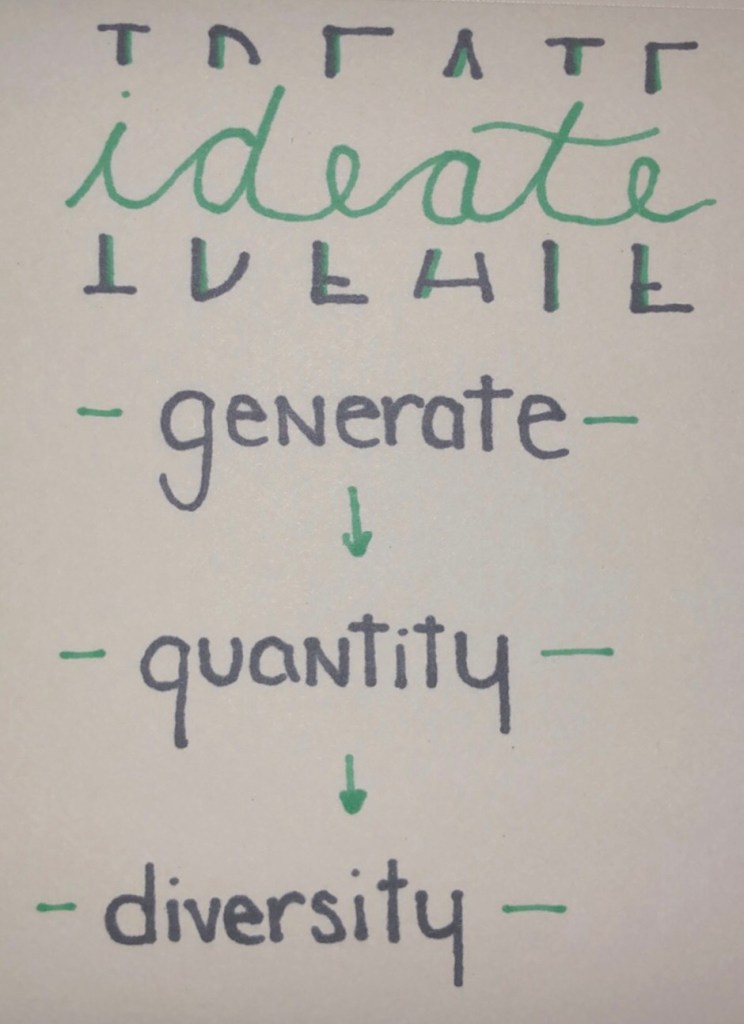 IDEATE
ideate
- generate -
↓
- quantity -
↓
- diversity -